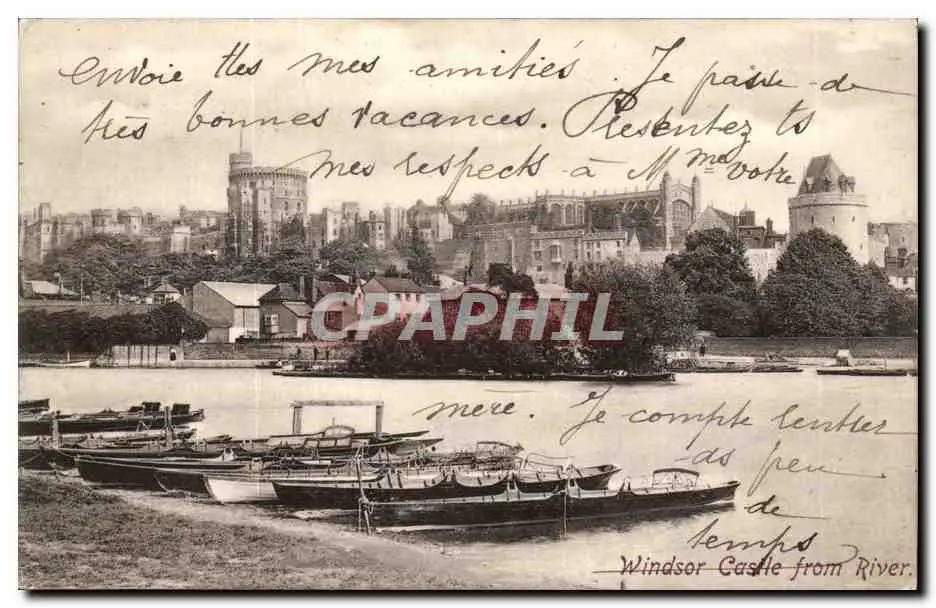 envoie ttes mes amitiés. Je passe de
très bonnes vacances. Présentez ts
mes respects à Mme votre
CPAPHIL
mère. Je compte rentrer
ds peu
de
temps
Windsor Castle from River.